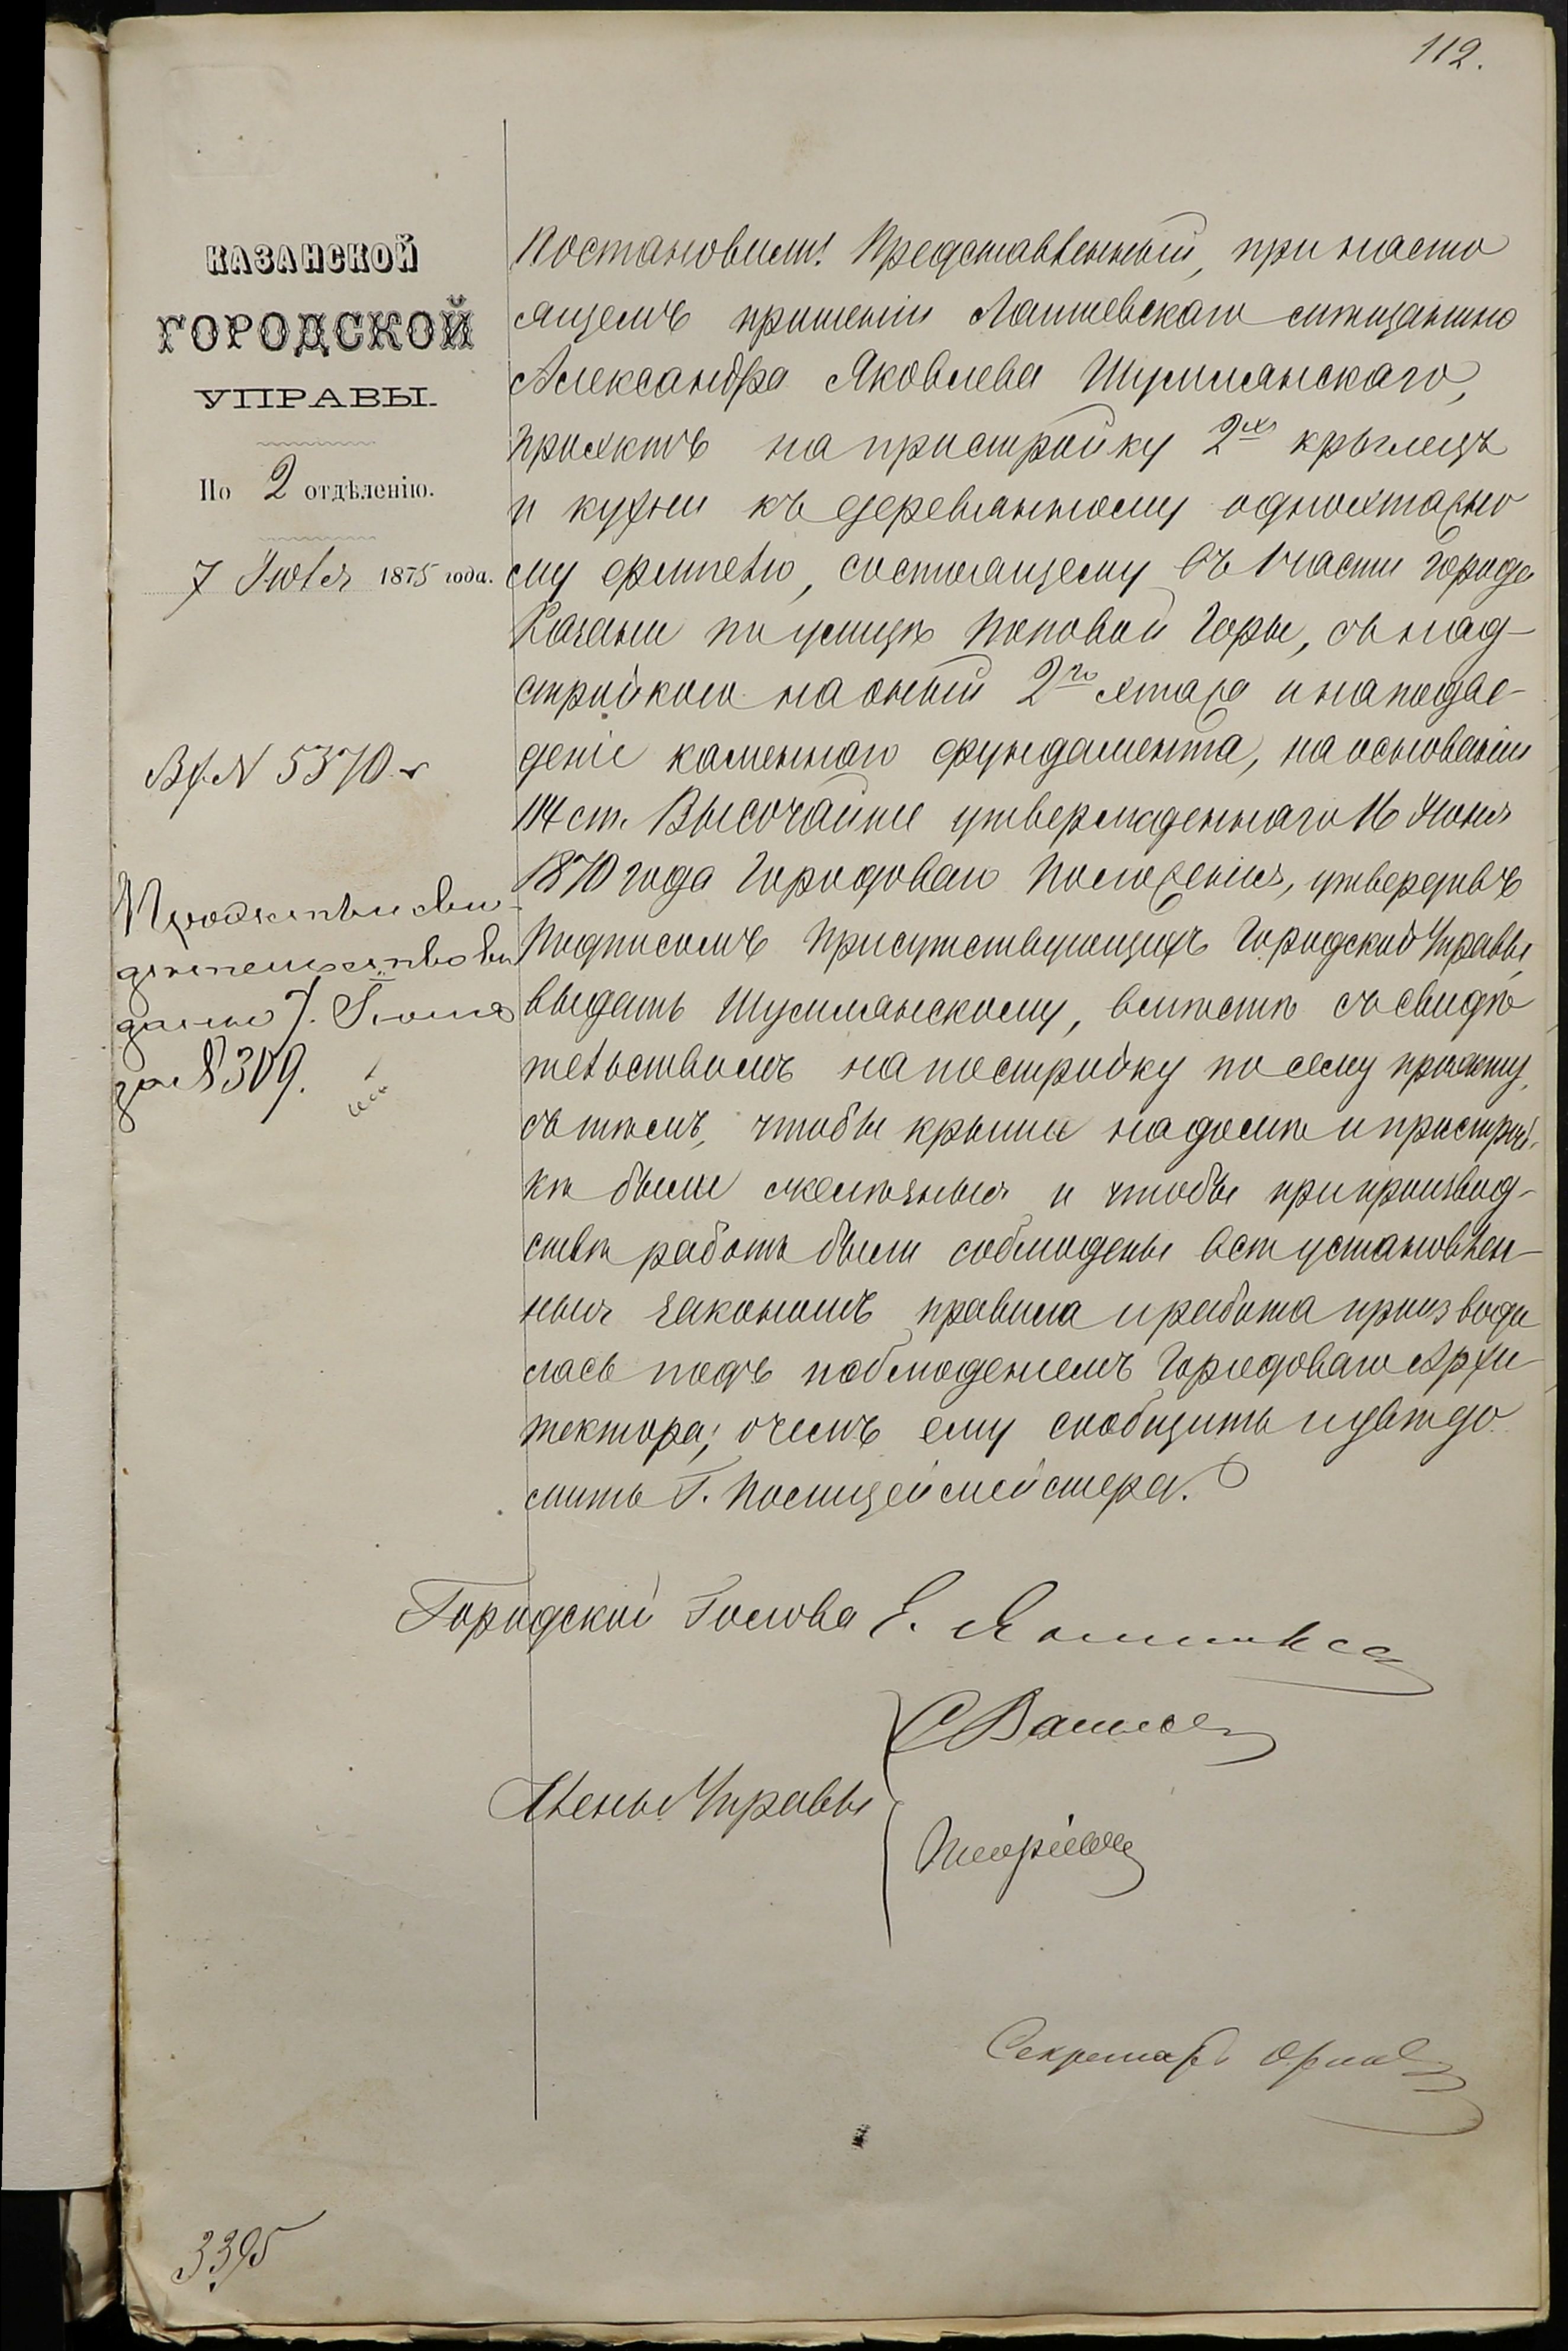 112.
КАЗАНСКОЙ
ГОРОДСКОЙ
УПРАВЫ.
По 2 отдѣленію.
7 Июля 1875 года.
Вх. N 5370
Проэктъ и сви-
дѣтельство вы
даны 7. Іюля
за № 309.
Постановили: Представленный, при насто
ящемъ прошеніи Лаишевскаго мѣщанина
Александра Яковлева Шулмянскаго,
проэктъ на пристройку 2хъ крылецъ
и кухни къ деревянному одноэтажно
му флигелю, состоящему въ 1 части города
Казани по улицѣ Поповой Горы, съ над-
стройкою на оный 2го этажа и на подве-
деніе каменнаго фундамента, на основаніи
114 ст. Высочайше утвержденнаго 16 Июня
1870 года Городоваго Положенія, утвердивъ
подписомъ Присутствующихъ Городской Управы,
выдать Шулмянскому, вмѣстѣ съ свидѣ
тельствомъ на постройку по сему проэкту,
съ тѣмъ, чтобы крыши на домѣ и пристрой-
кѣ были желѣзныя и чтобы при производ-
ствѣ работъ были соблюдены всѣ установлен-
ныя закономъ правила и работа производи
лась подъ наблюденіемъ Городоваго Архи-
тектора; о чемъ ему сообщить и увѣдо
мить Г. Полицеймейстера.
Городской Голова Е.
Члены Управы
Секретарь
3395